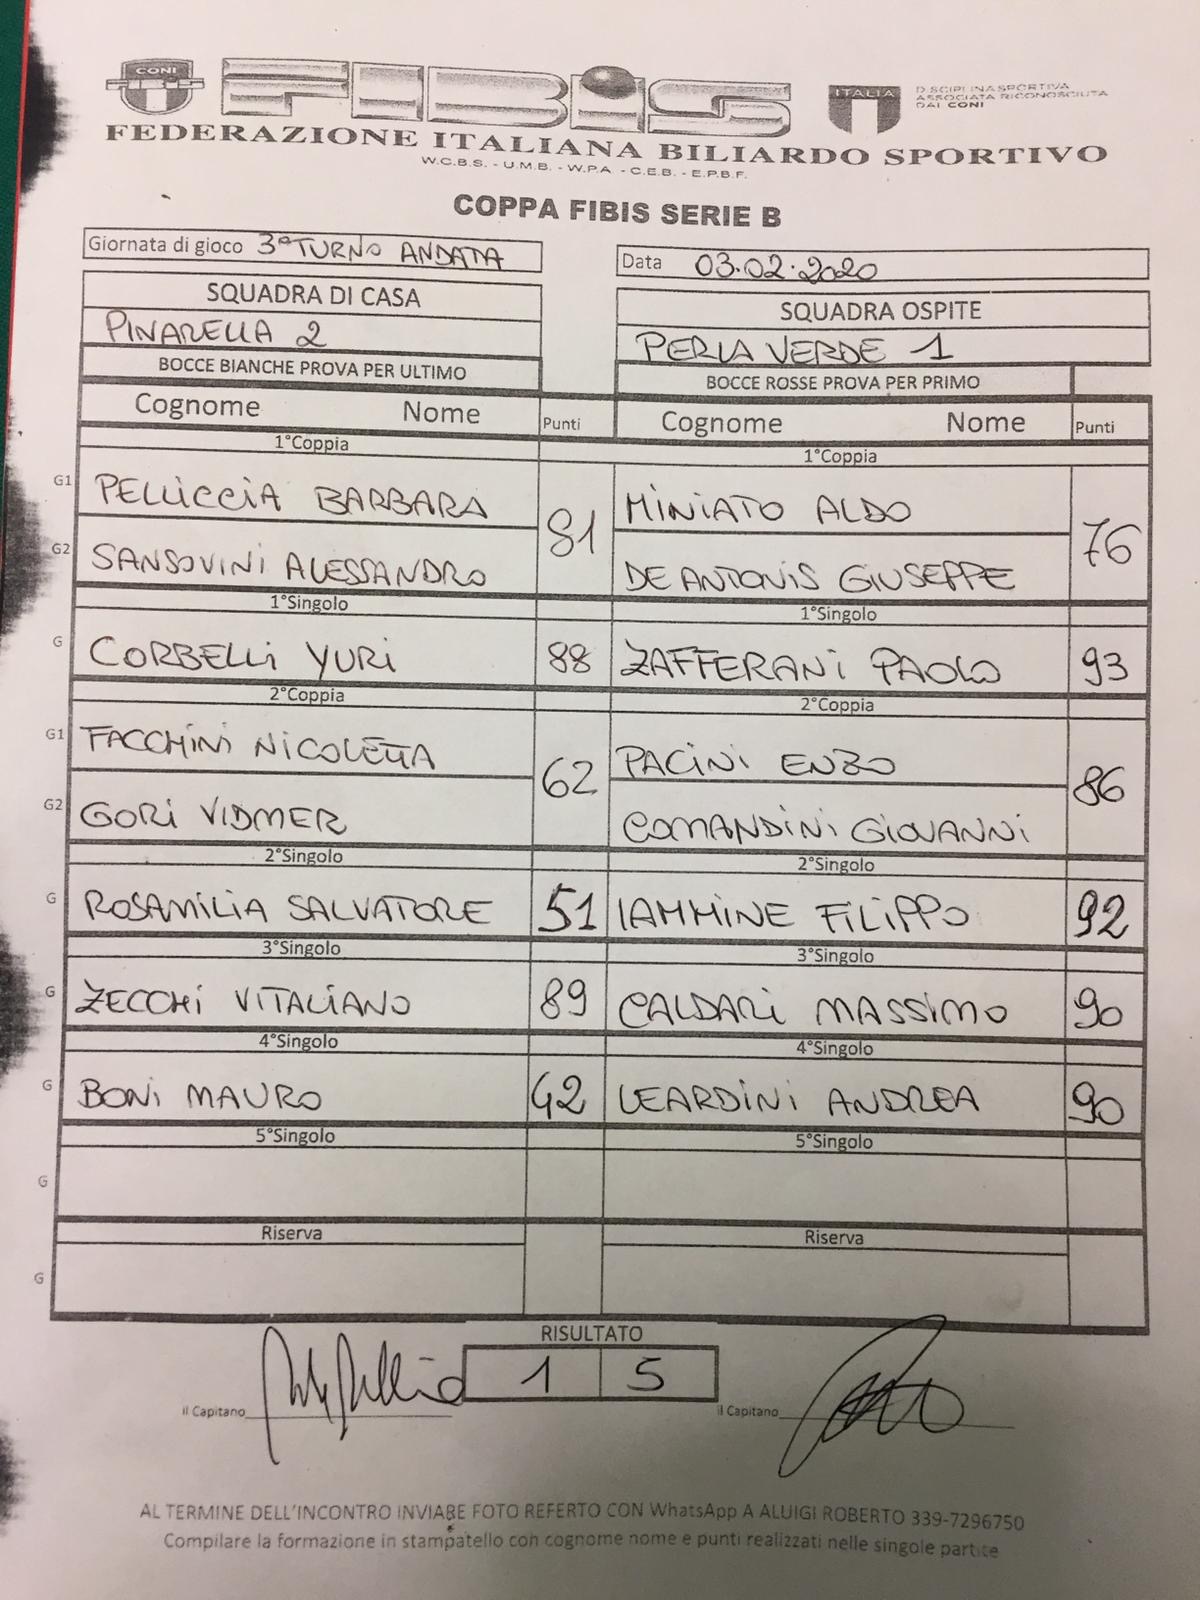 CONI FIBIS ITALIA DISCIPLINA SPORTIVA
ASSOCIATA RICONOSCIUTA
DAL CONI
FEDERAZIONE ITALIANA BILIARDO SPORTIVO
W.C.B.S. - U.M.B. - W.P.A. - C.E.B. - E.P.B.F.
COPPA FIBIS SERIE B
Giornata di gioco 3° TURNO ANDATA Data 03.02.2020
SQUADRA DI CASA SQUADRA OSPITE
PINARELLA 2 PERLA VERDE 1
BOCCE BIANCHE PROVA PER ULTIMO BOCCE ROSSE PROVA PER PRIMO
Cognome Nome Punti Cognome Nome Punti
1°Coppia 1°Coppia
G1 PELLICCIA BARBARA 81 MINIATO ALDO 76
G2 SANSOVINI ALESSANDRO DE ANTONIS GIUSEPPE
1°Singolo 1°Singolo
G CORBELLI YURI 88 ZAFFERANI PAOLO 93
2°Coppia 2°Coppia
G1 FACCHINI NICOLETTA 62 PACINI ENZO 86
G2 GORI VIDMER COMANDINI GIOVANNI
2°Singolo 2°Singolo
G ROSAMILIA SALVATORE 51 IAMMINE FILIPPO 92
3°Singolo 3°Singolo
G ZECCHI VITALIANO 89 CALDARI MASSIMO 90
4°Singolo 4°Singolo
G BONI MAURO 42 LEARDINI ANDREA 90
5°Singolo 5°Singolo
G
Riserva Riserva
G
RISULTATO
1 5
il Capitano il Capitano
AL TERMINE DELL'INCONTRO INVIARE FOTO REFERTO CON WhatsApp A ALUIGI ROBERTO 339-7296750
Compilare la formazione in stampatello con cognome nome e punti realizzati nelle singole partite